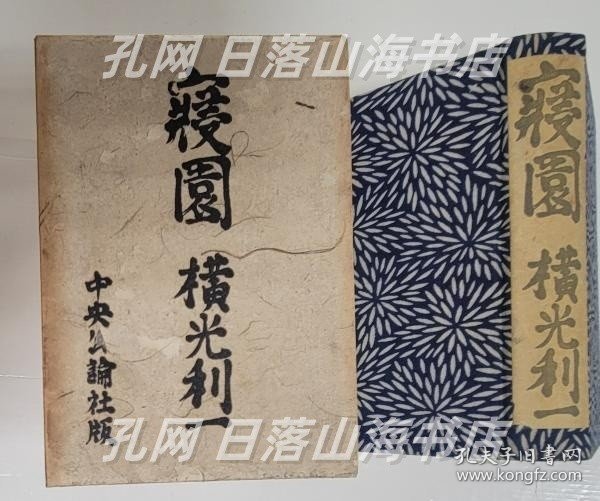 孔网 日落山海书店
寝園 横光利一
中央公論社版
寝園 横光利一
孔网 日落山海书店
孔夫子旧书网
www.kongfz.com